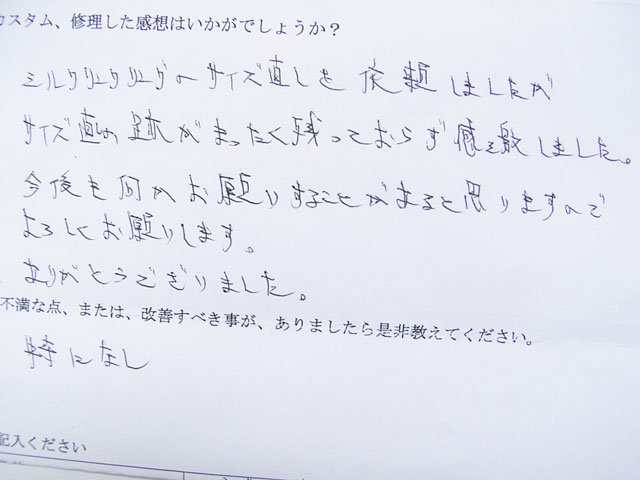 カスタム、修理した感想はいかがでしょうか？
サイズ直しを 依頼 しましたが
サイズ直しの 跡が まったく残っておらず 感激しました。
今後も何かお願いすることがあると思いますので
よろしくお願いします。
ありがとうございました。
不満な点、または、改善すべき事が、ありましたら是非教えてください。
特になし
記入ください